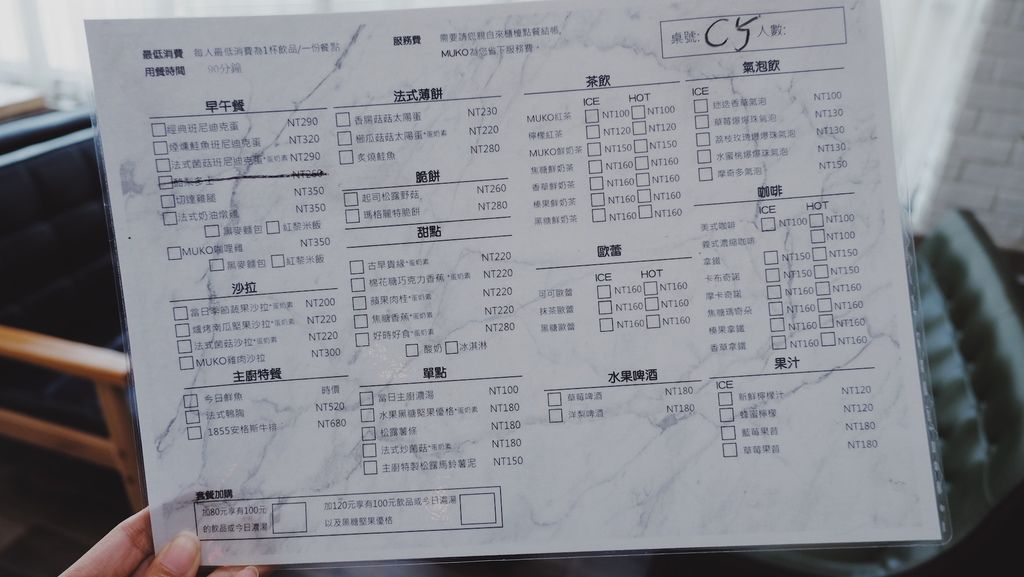 最低消費 每人最低消費為1杯飲品/一份餐點
用餐時間 90分鐘
服務費 需要請您親自來櫃檯點餐結帳,
MUKO為您省下服務費。
桌號: C5 人數:
早午餐
經典班尼迪克蛋 NT290
煙燻鮭魚班尼迪克蛋 NT320
法式菌菇班尼迪克蛋*蛋奶素 NT290
酪梨多士 NT260
切達雞腿 NT350
法式奶油燉雞 NT350
黑麥麵包 紅藜米飯
MUKO咖哩雞 NT350
黑麥麵包 紅藜米飯
沙拉
當日季節蔬果沙拉*蛋奶素 NT200
爐烤南瓜堅果沙拉*蛋奶素 NT220
法式菌菇沙拉*蛋奶素 NT220
MUKO雞肉沙拉 NT300
主廚特餐
今日鮮魚 時價
法式鴨胸 NT520
1855安格斯牛排 NT680
套餐加購
加80元享有100元
的飲品或今日濃湯
加120元享有100元飲品或今日濃湯
以及黑糖堅果優格
法式薄餅
香腸菇菇太陽蛋 NT230
櫛瓜菇菇太陽蛋*蛋奶素 NT220
炙燒鮭魚 NT280
脆餅
起司松露野菇 NT260
瑪格麗特脆餅 NT280
甜點
古早貴緣*蛋奶素 NT220
棉花糖巧克力香蕉*蛋奶素 NT220
蘋果肉桂*蛋奶素 NT220
焦糖香蕉*蛋奶素 NT220
好時好食*蛋奶素 NT280
酸奶 冰淇淋
單點
當日主廚濃湯 NT100
水果黑糖堅果優格*蛋奶素 NT180
松露薯條 NT180
法式炒菌菇*蛋奶素 NT180
主廚特製松露馬鈴薯泥 NT150
茶飲
ICE HOT
MUKO紅茶 NT100 NT100
檸檬紅茶 NT120 NT120
MUKO鮮奶茶 NT150 NT150
焦糖鮮奶茶 NT160 NT160
香草鮮奶茶 NT160 NT160
榛果鮮奶茶 NT160 NT160
黑糖鮮奶茶 NT160 NT160
歐蕾
ICE HOT
可可歐蕾 NT160 NT160
抹茶歐蕾 NT160 NT160
黑糖歐蕾 NT160 NT160
水果啤酒
草莓啤酒 NT180
洋梨啤酒 NT180
氣泡飲
ICE
迷迭香草氣泡 NT100
草莓爆爆珠氣泡 NT130
荔枝玫瑰爆爆珠氣泡 NT130
水蜜桃爆爆珠氣泡 NT130
摩奇多氣泡 NT150
咖啡
ICE HOT
美式咖啡 NT100 NT100
義式濃縮咖啡 NT100
拿鐵 NT150 NT150
卡布奇諾 NT150 NT150
摩卡奇諾 NT160 NT160
焦糖瑪奇朵 NT160 NT160
榛果拿鐵 NT160 NT160
香草拿鐵 NT160 NT160
果汁
ICE
新鮮檸檬汁 NT120
蜂蜜檸檬 NT120
藍莓果昔 NT180
草莓果昔 NT180